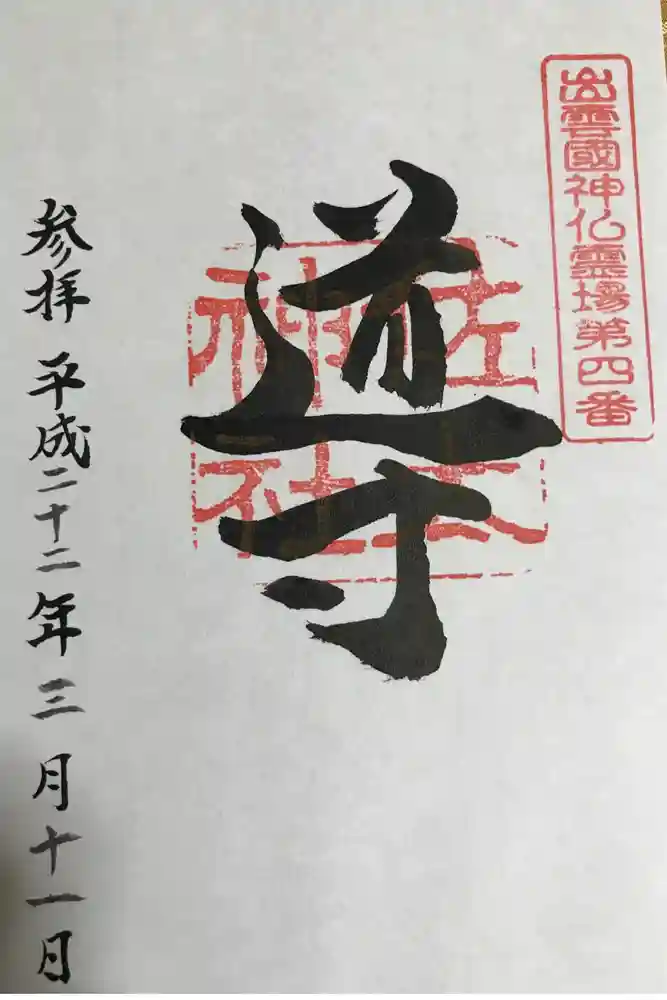 出雲國神仏霊場第四番
導
佐太
神社
参拝 平成二十二年三月十一日